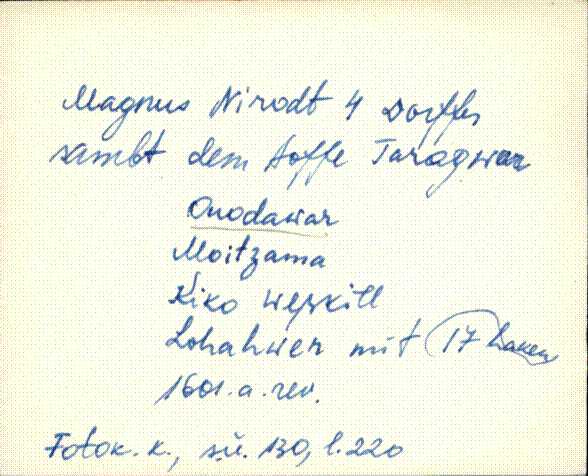 Magnus Nirodt 4 Dorffer
sambt dem Hoffe Taragwer
Onodawar
Moitzama
Kiko weskill
Lohahwer mit 17 haken
1601. a. rev.
Fotok. k., sü. 130, l. 220